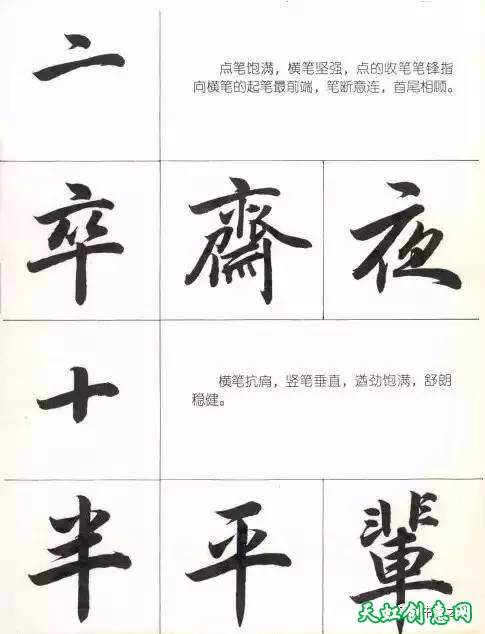 亠
点笔饱满，横笔坚强，点的收笔笔锋指
向横笔的起笔最前端，笔断意连，首尾相顾。
卒 齋 夜
十
横笔抗肩，竖笔垂直，遒劲饱满，舒朗
稳健。
半 平 輩
天虹创意网